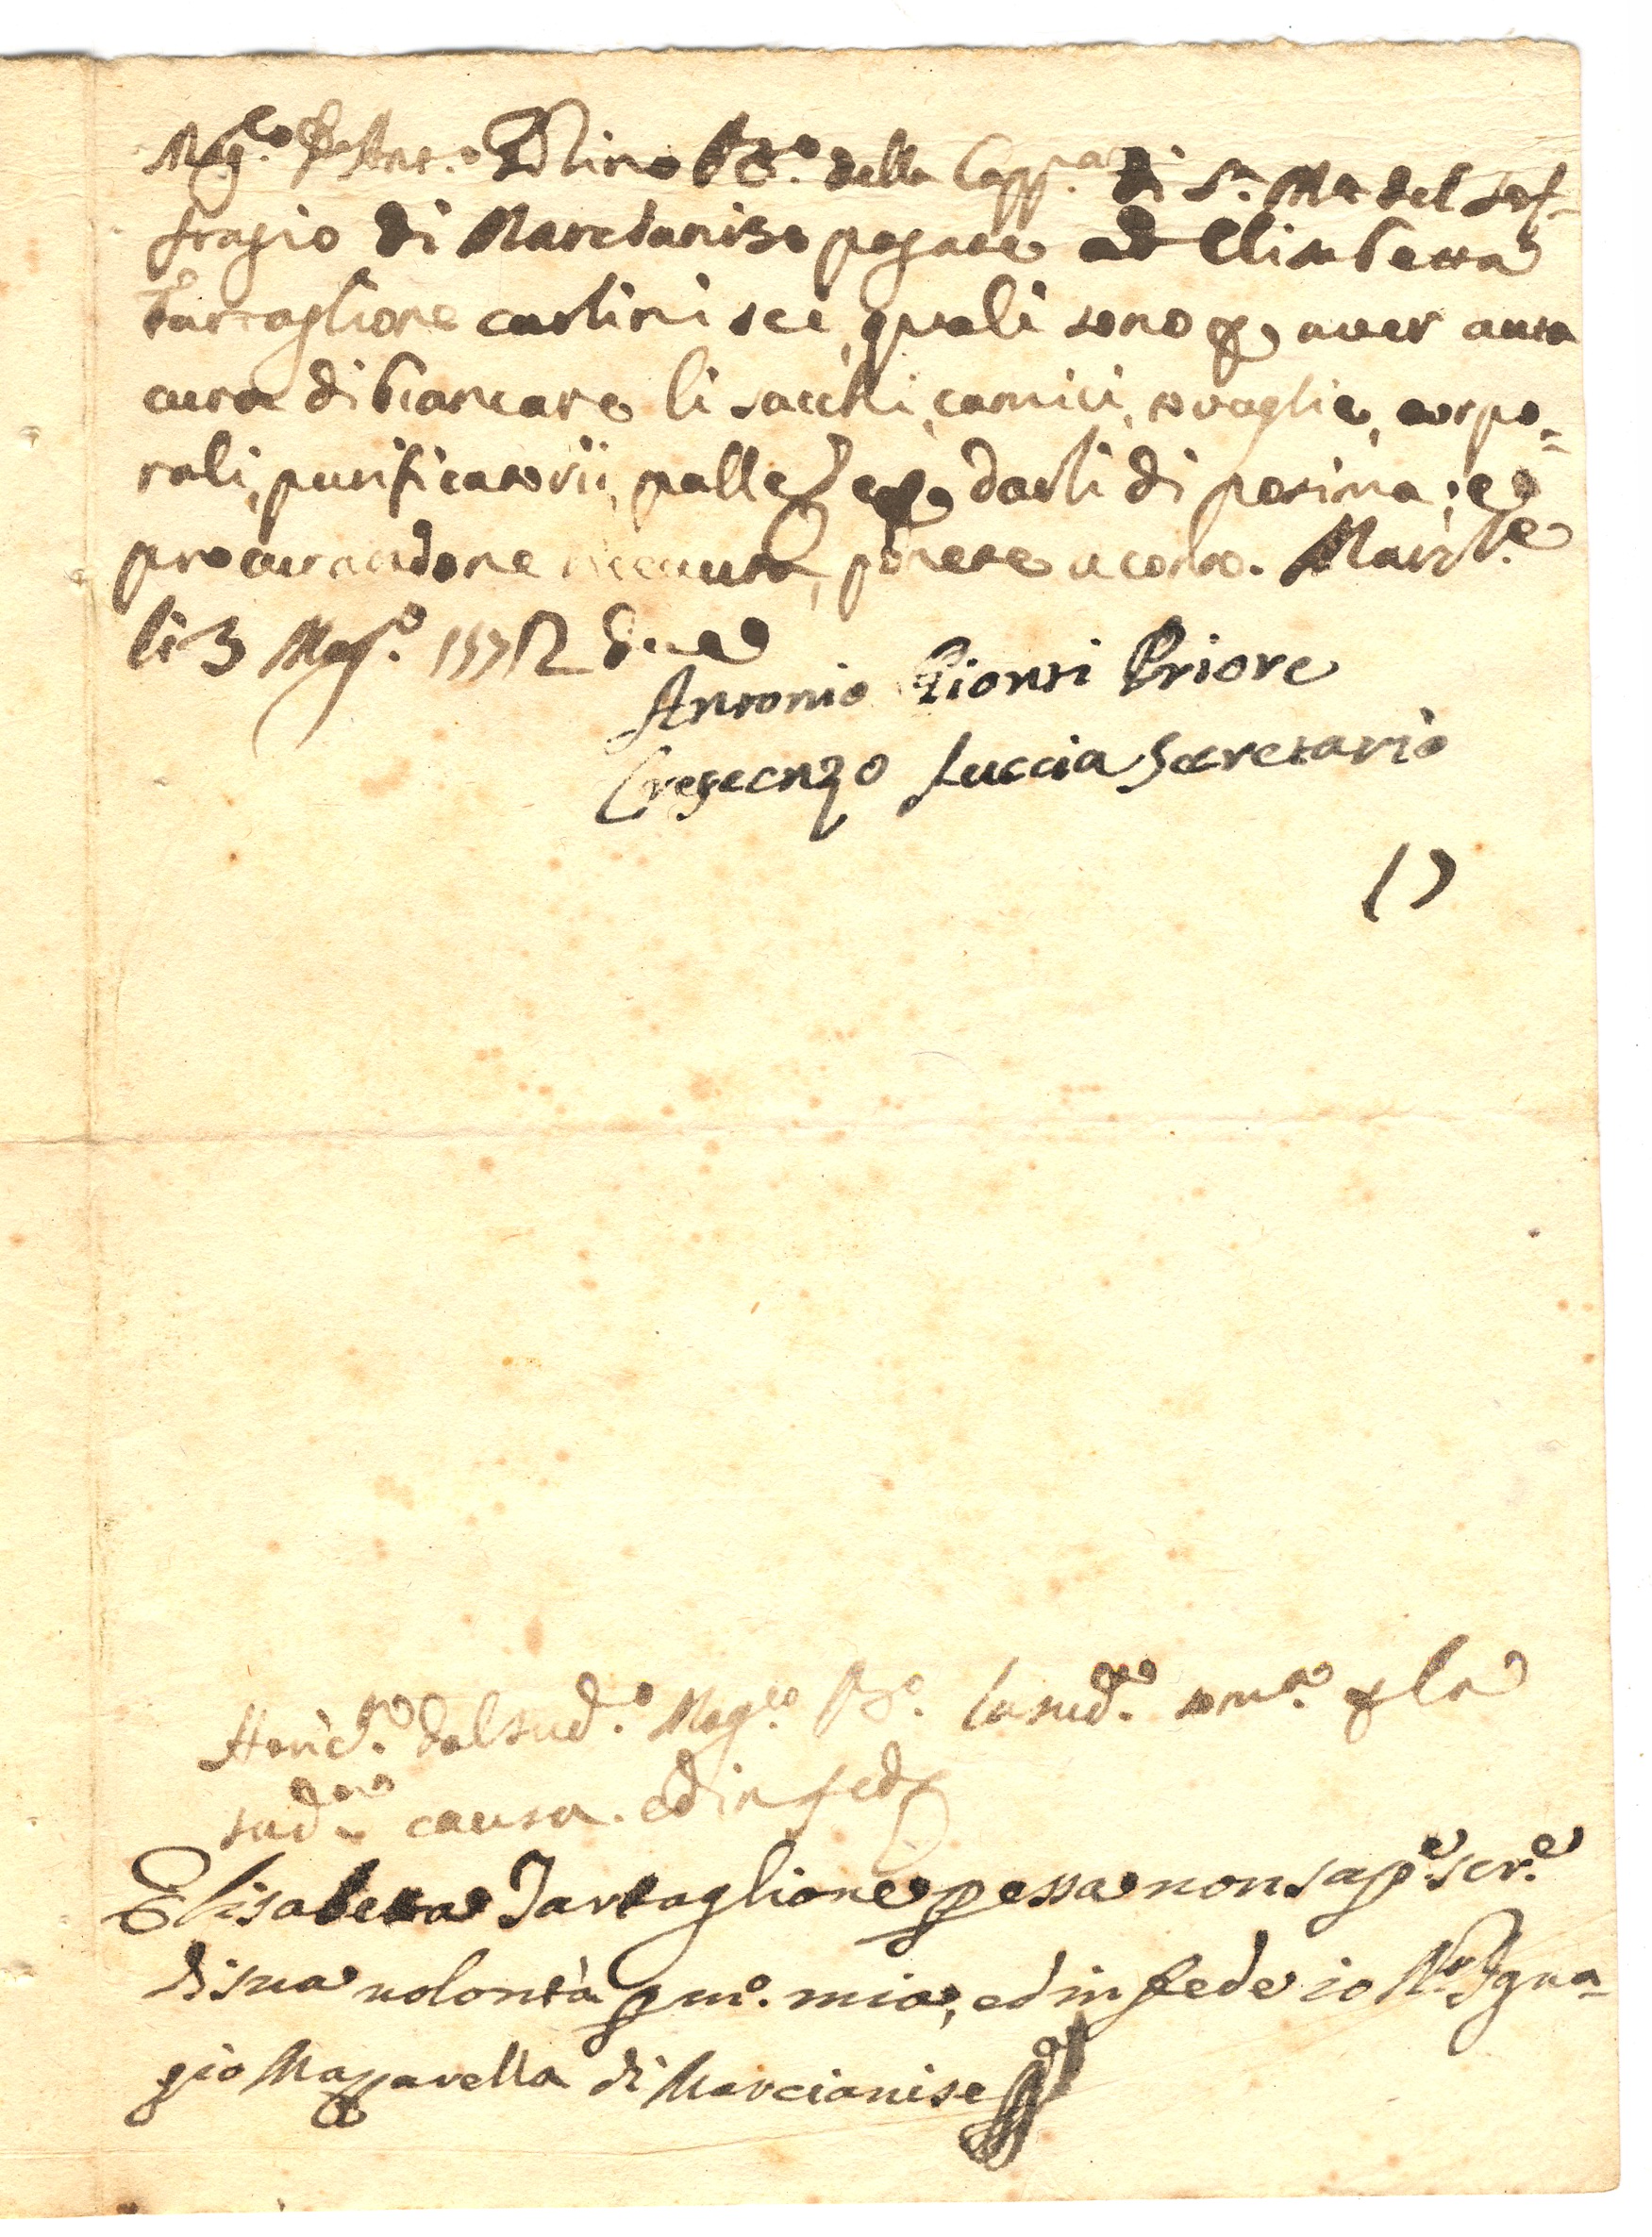 Mag.co Ant.o della Capp.a di S.a M.a del Suf-
fragio di Marcianise pagate ad Elisabetta
Tartaglione carlini sei, quali sono p aver auta
cura di biancare li sacchi, camici, tovaglie, corpo=
rali, purificatorii, palle, darli di posima; e
procurandone riceuuta, ponete a conto. Marc.se
li 3 Mag.o
Antonio Pionti Priore
Cresecnzo Luccia Secretario
17
dal sud.o Mag.co la sud.a p la
sud.a causa. ed in fede
Elisabetta Tartaglione p essa non sap.e scr.e
di sua uolontà p m.o mia, ed in fede io N.r Igna=
zio Mazzarella di Marcianise